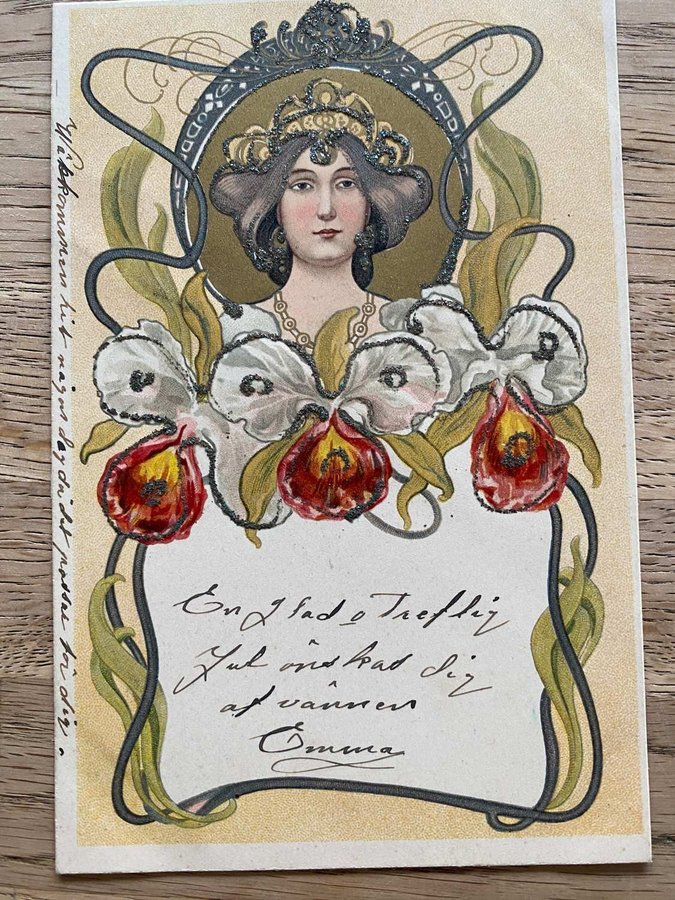 En glad o Treflig
Jul önskas dig
af vännen
Emma
Välkommen hit någon dag då det passar för dig.